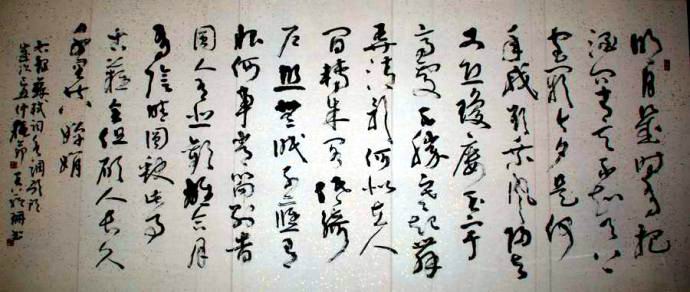 明月幾時有把
酒問青天不知天上
宮闕今夕是何
年我欲乘風歸去
又恐瓊樓玉宇
高處不勝寒起舞
弄清影何似在人
間轉朱閣低綺
戶照無眠不應有
恨何事長向別時
圓人有悲歡離合月
有陰晴圓缺此事
古難全但願人長久
千里共嬋娟
蘇軾詞水調歌頭
歲次己丑仲秋節